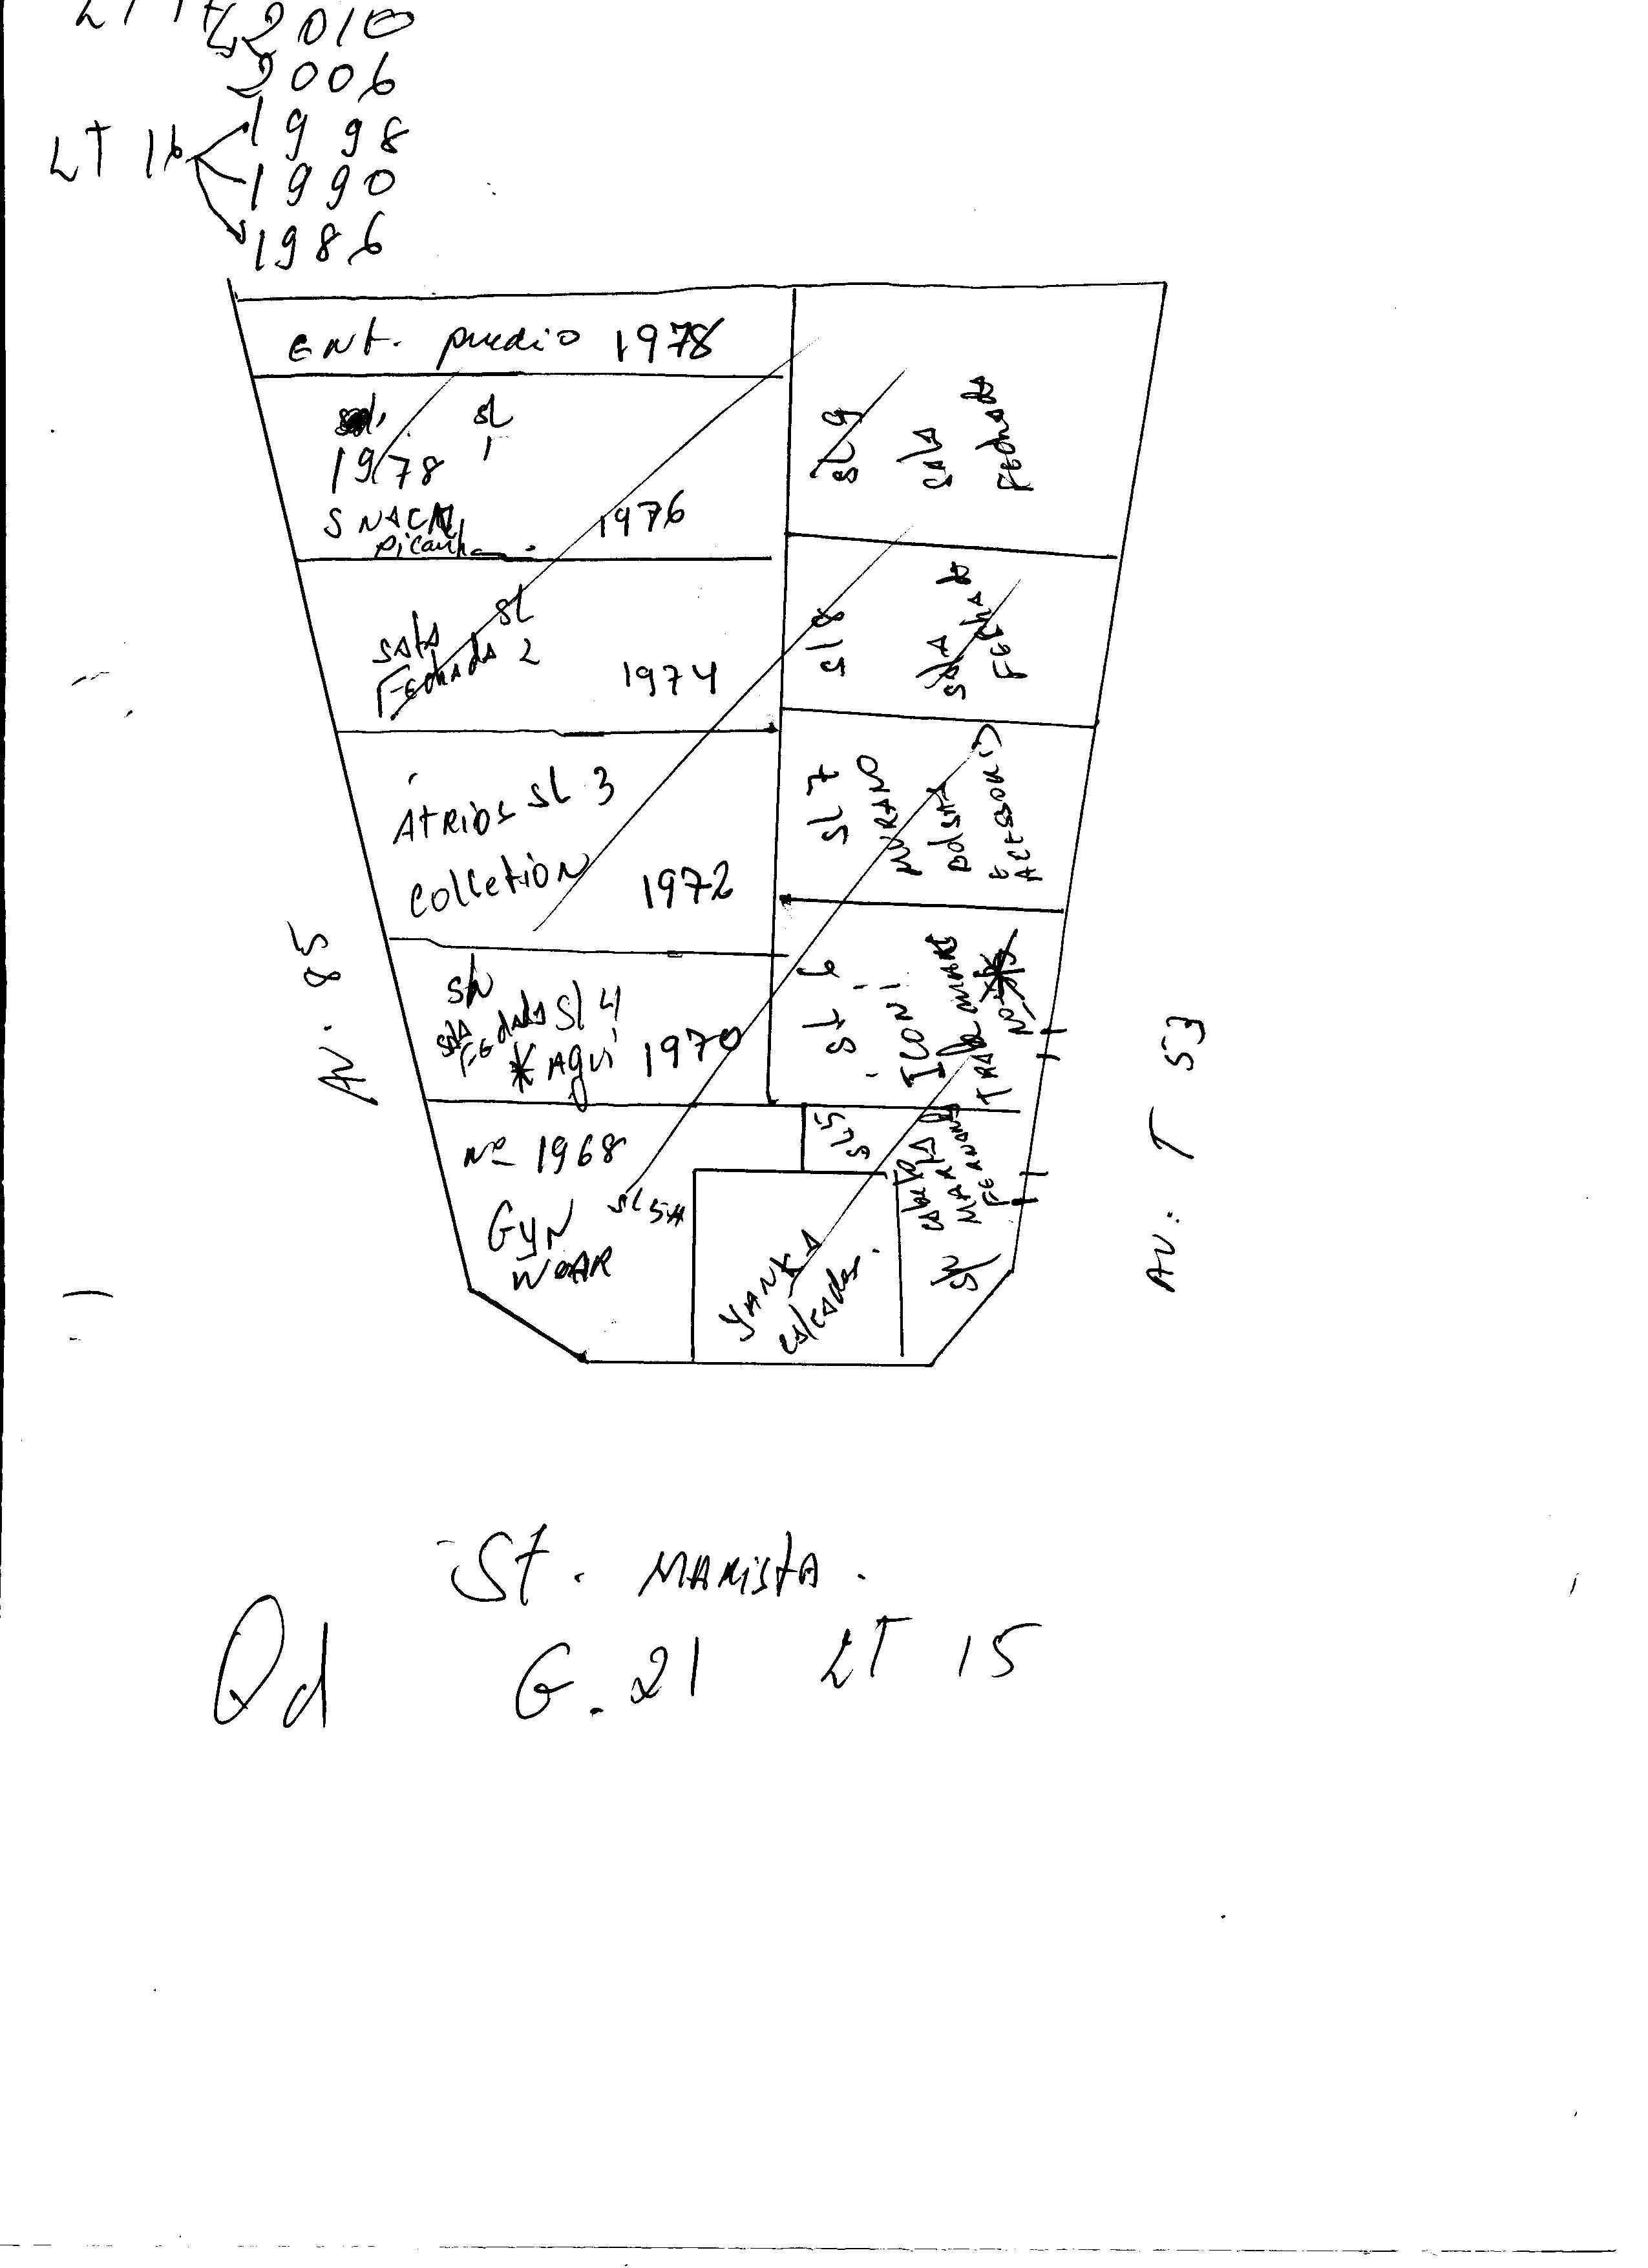 LT 17
2010
2006
LT 16
1998
1990
1986
ENt. predio 1978
SL 1
1978
SNACK
picanha
1976
SALA SL
FEchADA 2
1974
AtRios SL 3
COLLetioN
1972
S/N
SALA
FEchADA SL 4
* AQUi 1970
Nº 1968
GYN SL 5A
WEAR
SL 9
SALA
FEchADA
SL 8
SALA
FEchADA
SL 7
MURANO
BOLSAS
E ACESSORIO
SL 6
ICONi
TRADE MARK
Nº
SL 5
MARIA
FERNANDA
S/N
YANKA
CALCADOS.
AV. 85
AV: T 53
St. MARiStA.
Qd G.21 LT 15